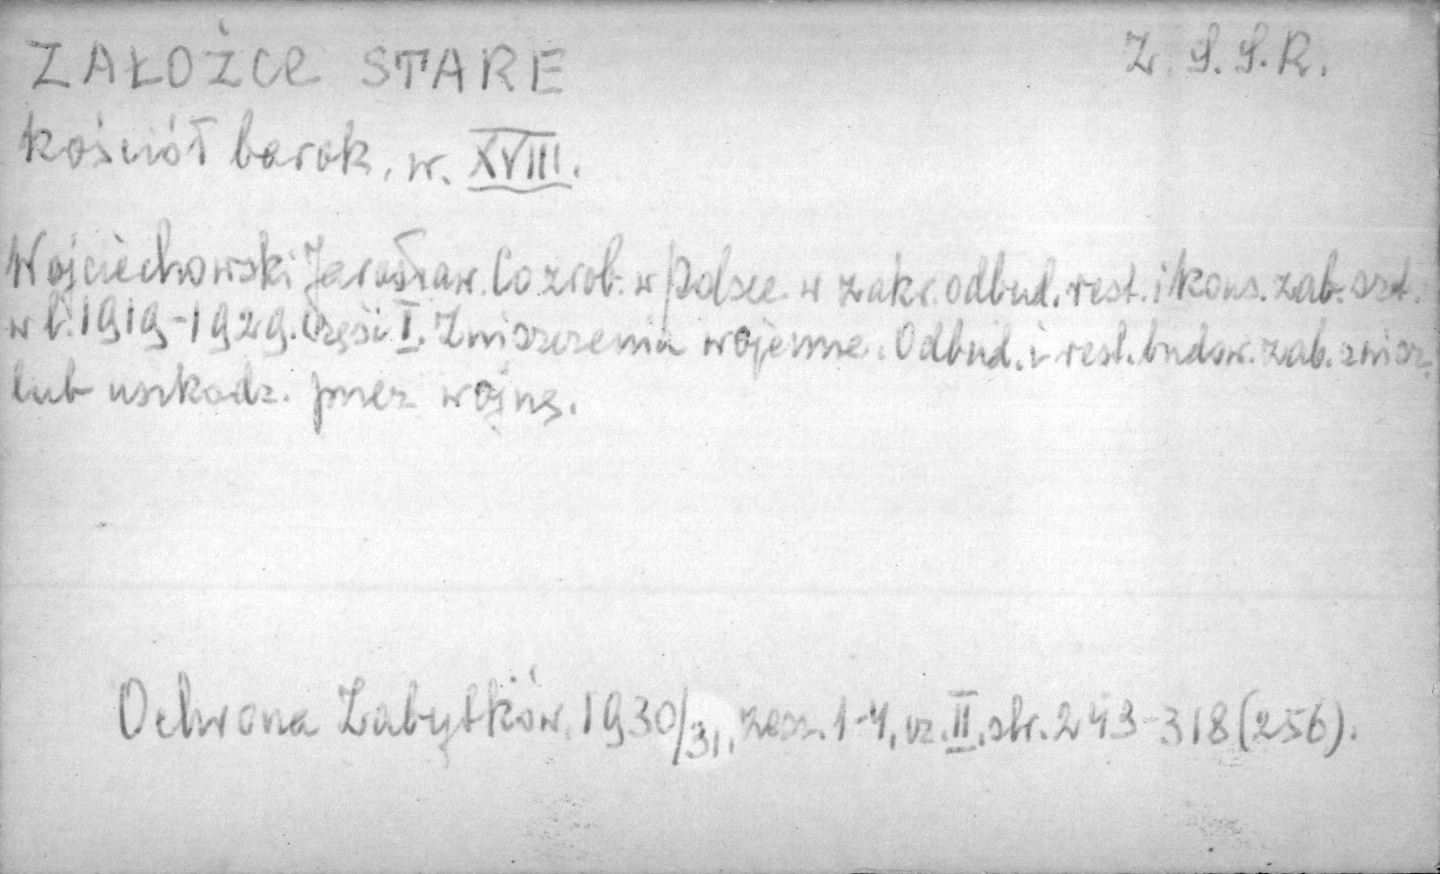 ZAŁOŻCE STARE
Z. S. S. R.
kościół barok. w. XVIII.
Wojciechowski Jarosław. Co zrob. w Polsce w zakr. odbud. rest. i kons. zab. szt.
w l. 1919-1929. Część I. Zniszczenia wojenne. Odbud. i rest. budow. zab. znisz.
lub uszkodz. przez wojnę.
Ochrona Zabytków, 1930/31, zesz. 1-4, cz. II, str. 243-318 (256).